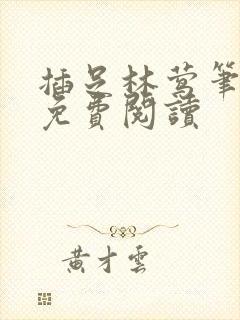 插足林莺笔
免費閱讀
黃才雲